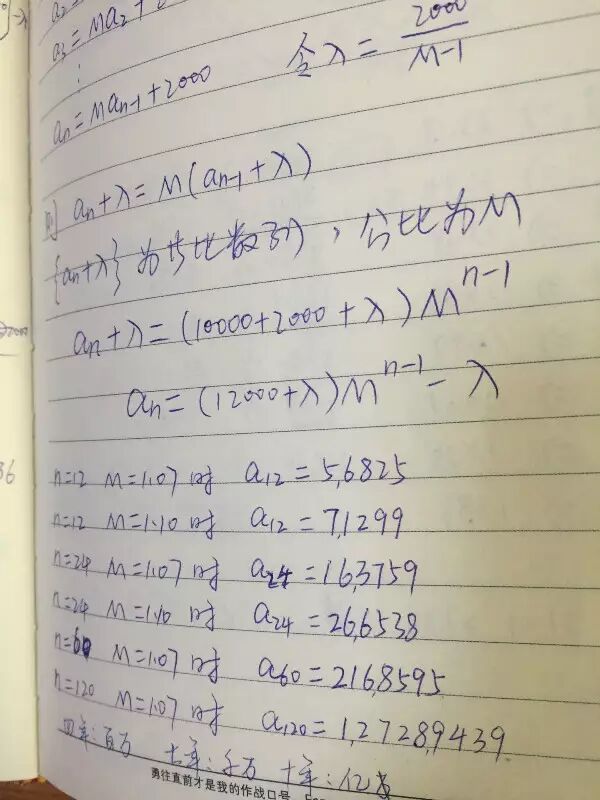 a₃ = Ma₂ +
⋮
aₙ = Maₙ₋₁ + 2000 令λ = 2000/M-1
则 aₙ+λ = M(aₙ₋₁+λ)
{aₙ+λ} 为等比数列, 公比为M
aₙ+λ = (10000+2000+λ)Mⁿ⁻¹
aₙ = (12000+λ)Mⁿ⁻¹ - λ
n=12 M=1.07时 a₁₂ = 5,6825
n=12 M=1.10时 a₁₂ = 7,1299
n=24 M=1.07时 a₂₄ = 16,3759
n=24 M=1.10时 a₂₄ = 26,6538
n=60 M=1.07时 a₆₀ = 216,8595
n=120 M=1.07时 a₁₂₀ = 1,2728,9439
四年:百万 七年:千万 十年:亿
勇往直前才是我的作战口号